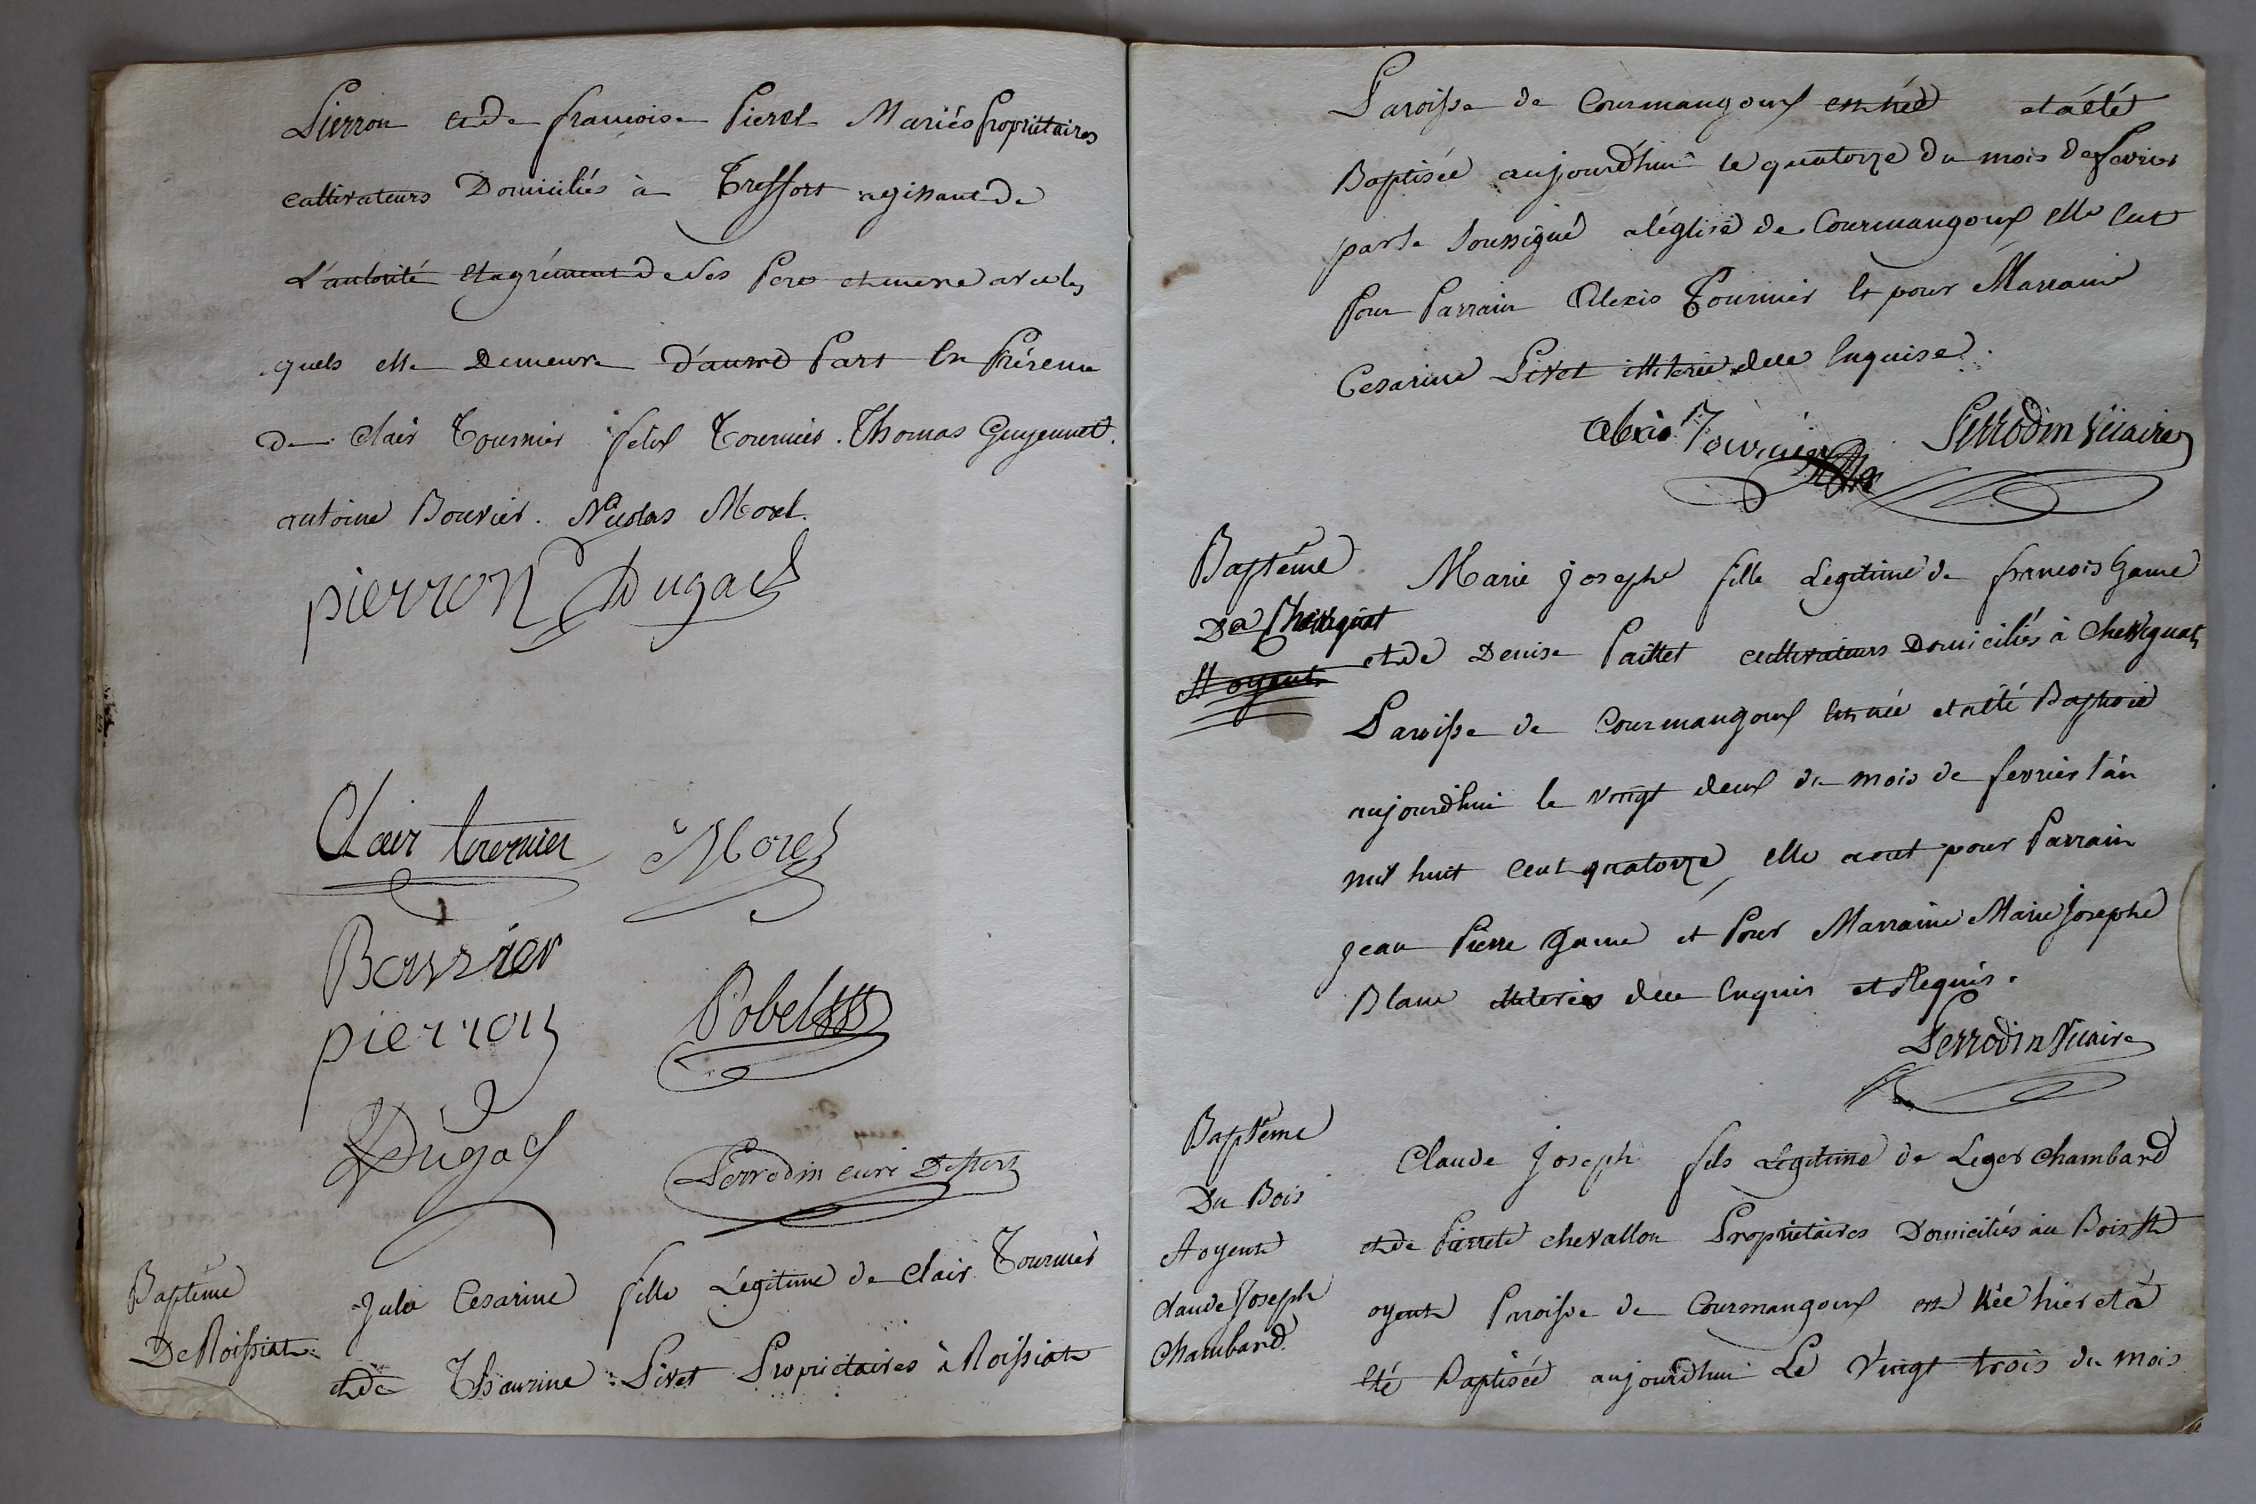 Pierron et de francoise Pieret Mariés propriétaires
cultivateurs Domiciliés à Treffort agissant de
L'autorité et agrément de ses Pere et mere avec les
quels elle Demeure d'autre Part En Présence
de Clair Tournier felix Tournier. Thomas Guyennet.
antoine Bouvier. Nicolas Morel.
pierron Dugad
Clair tournier Morel
Bouvier
pierron Pobel
Dugad
Perrodin curé
Baptême
De Roissiat
Julie Cesarine fille Légitime de Clair Tournier
et de Thaurine Pivet Propriétaires à Roissiat
Paroisse de Courmangoux est née et a été
Baptisée aujourd'hui le quatorze du mois de fevrier
par le soussigné a l'église de Courmangoux elle eut
pour Parrain Alexis Tournier et pour Marraine
Cesarine Pivet illiterée dece Enquise.
alexis Tournier Perrodin Vicaire
Baptême
De Chevignat
St oyent
Marie josephe fille Legitime de francois Game
et de Denise Paillet cultivateurs Domiciliés à Chevignat
Paroisse de Courmangoux Est née et a été Baptisée
aujourd'hui le vingt deux du mois de fevrier l'an
mil huit cent quatorze, elle a eut pour Parrain
jean Pierre Game et Pour Marraine Marie Josephe
Blanc illiteries dece Enquis et Requis.
Perrodin Vicaire
Baptême
Du Bois
St oyent
claude Joseph
Chambard.
Claude Joseph fils Légitime de Leger Chambard
et de Pierrete chevallon Propriétaires Domiciliés au Bois St
oyent Paroisse de Courmangoux est Née hier et a
été Baptisée aujourd'hui Le Vingt trois du mois